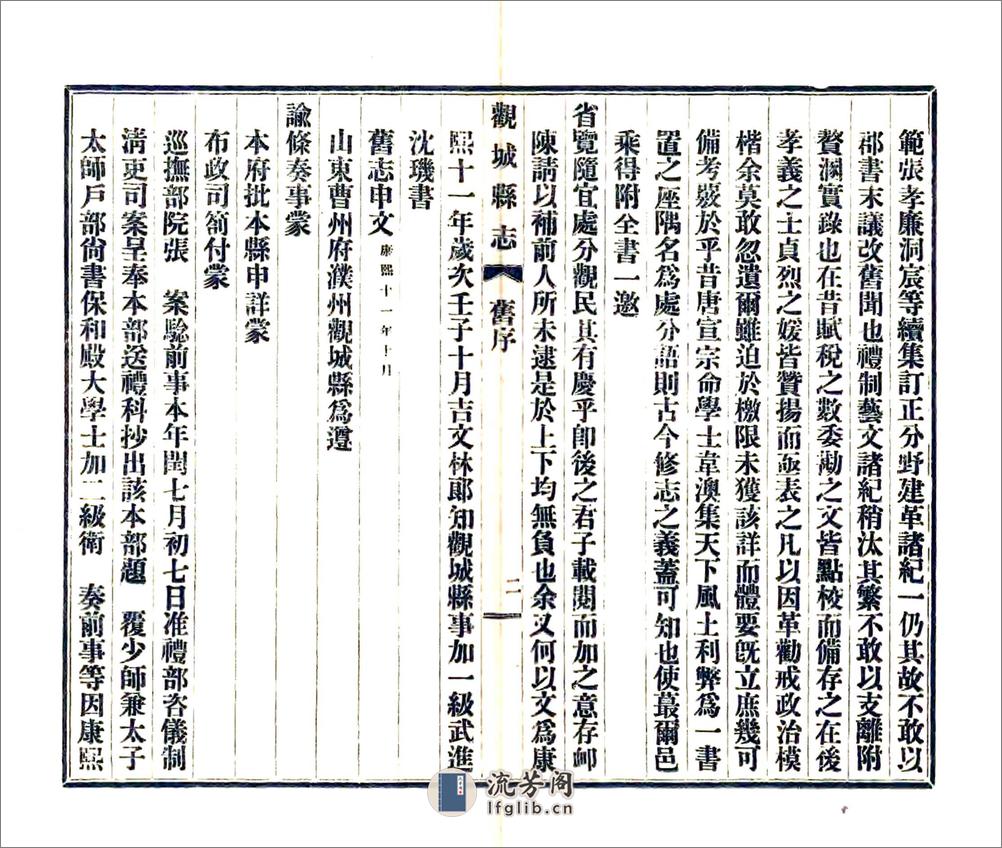 範張孝廉洞宸等續集訂正分野建革諸紀一仍其故不敢以
郡書末議改舊聞也禮制藝文諸紀稍汰其繁不敢以支離附
贅溷實錄也在昔賦稅之數委勘之文皆點校而備存之在後
孝義之士貞烈之媛皆贊揚而亟表之凡以因革勸戒政治模
楷余莫敢忽遺爾雖迫於檄限未獲該詳而體要旣立庶幾可
備考覈於乎昔唐宣宗命學士韋澳集天下風土利弊爲一書
置之座隅名爲處分語則古今修志之義蓋可知也使蕞爾邑
乘得附全書一邀
省覽隨宜處分觀民其有慶乎卽後之君子載閱而加之意存邮
陳請以補前人所未逮是於上下均無負也余又何以文爲康
觀城縣志 舊序 二
熙十一年歲次壬子十月吉文林郞知觀城縣事加一級武進
沈璣書
舊志申文康熙十一年十月
山東曹州府濮州觀城縣爲遵
諭條奏事蒙
本府批本縣申詳蒙
布政司箚付蒙
巡撫部院張 案驗前事本年閏七月初七日准禮部咨儀制
淸吏司案呈奉本部送禮科抄出該本部題 覆少師兼太子
太師戶部尙書保和殿大學士加二級衛 奏前事等因康熙
流芳阁
lfglib.cn